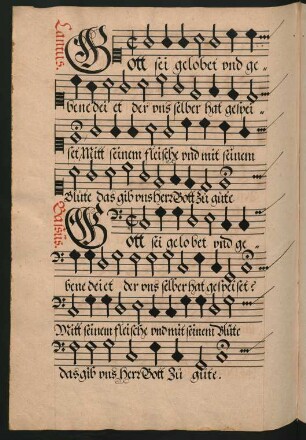 Cantus.
Gott sei gelobet vnd ge-
bene dei et der vns selber hat gespei-
set, Mitt seinem fleische vnd mit seinem
Blůte das gib vns Herr Gott Zů gůte
Bassus.
Gott sei gelobet vnd ge-
bene dei et der vns selber hat gespeiset:
Mitt seinem fleische vnd mit seinem Blůte
das gib vns Herr Gott Zů gůte.